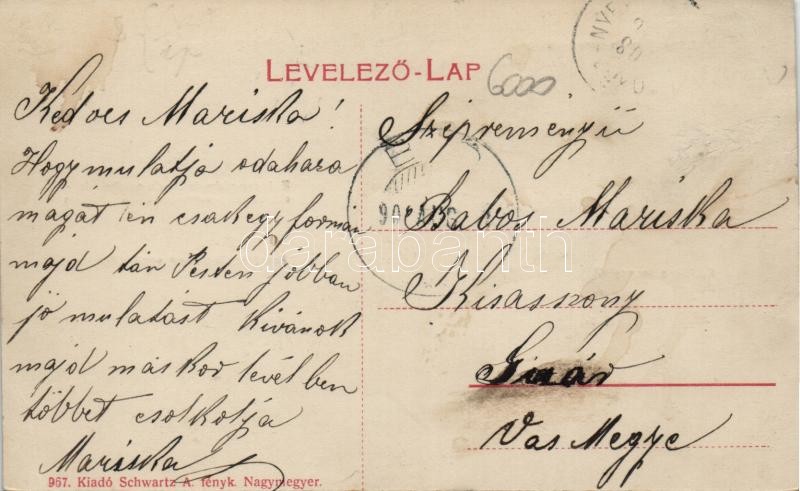 LEVELEZŐ-LAP
6000
Kedves Mariska!
Hogy mulatja odahaza
magát én csak egy formán
majd tán Pesten jobban
jő mulatást kivánok
majd máskor levélben
többet csolkolja
Mariska
Szépreményü
Babos Mariska
Kisasszony
Vas Megye
darabanth
967. Kiadó Schwartz A. fényk. Nagymegyer.